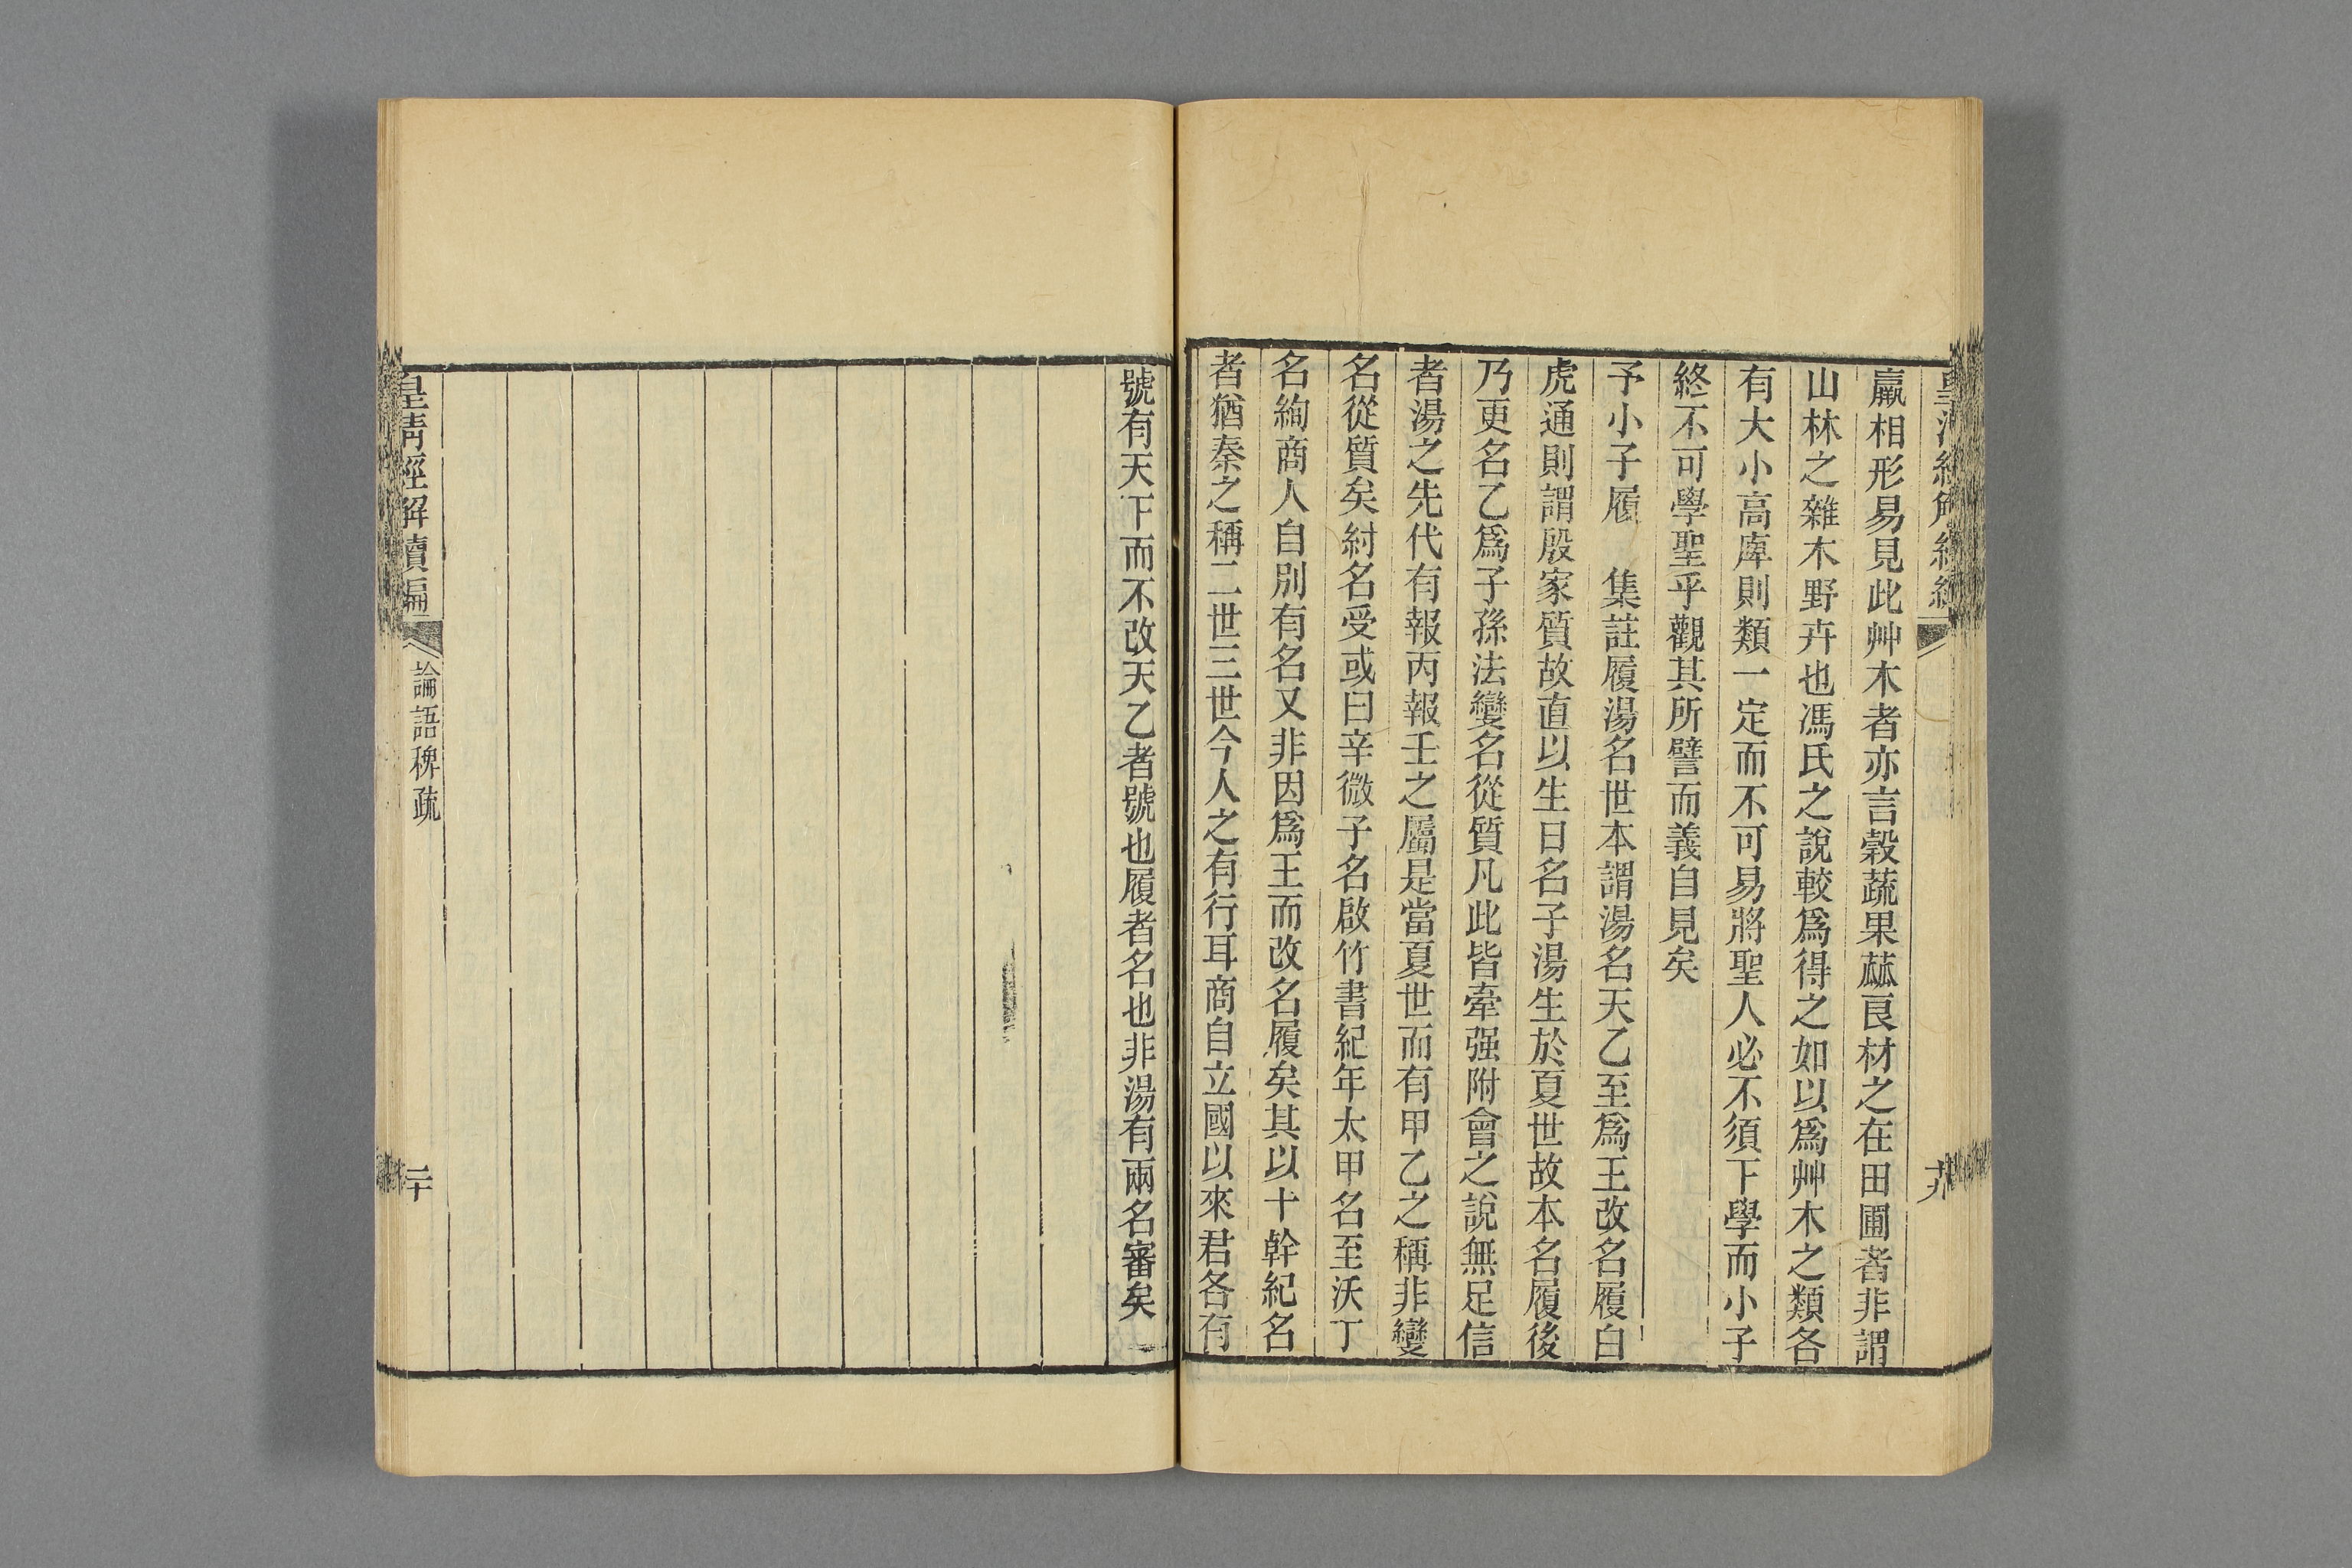 羸相形易見此艸木者亦言穀蔬果蓏良材之在田圃者非謂
山林之雜木野卉也馮氏之說較爲得之如以爲艸木之類各
有大小高庳則類一定而不可易將聖人必不須下學而小子
終不可學聖乎觀其所譬而義自見矣
予小子履　集註履湯名世本謂湯名天乙至爲王改名履白
虎通則謂殷家質故直以生日名子湯生於夏世故本名履後
乃更名乙爲子孫法變名從質凡此皆牽强附會之說無足信
者湯之先代有報丙報壬之屬是當夏世而有甲乙之稱非變
名從質矣紂名受或曰辛微子名啟竹書紀年太甲名至沃丁
名絢商人自別有名又非因爲王而改名履矣其以十幹紀名
者猶秦之稱二世三世今人之有行耳商自立國以來君各有
十九
號有天下而不改天乙者號也履者名也非湯有兩名審矣
皇清經解續編
論語稗疏
二十